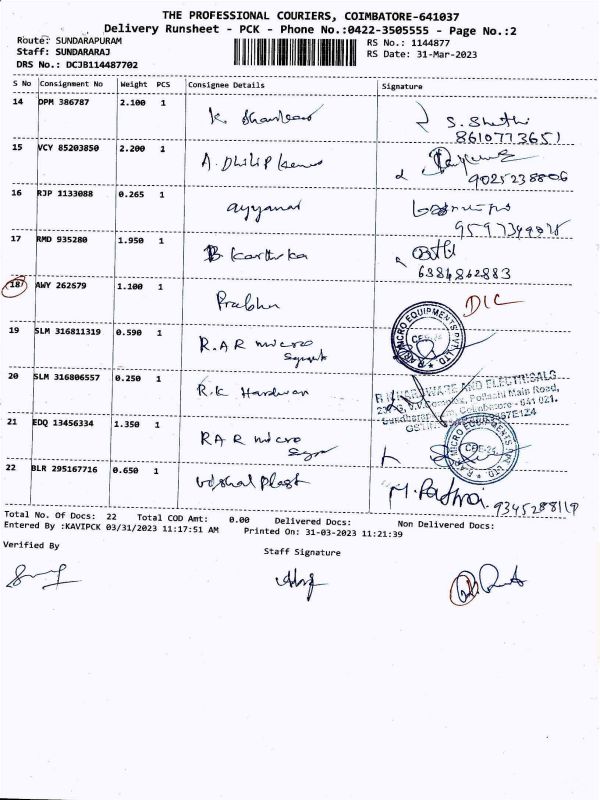 THE PROFESSIONAL COURIERS, COIMBATORE-641037
Delivery Runsheet - PCK - Phone No.:0422-3505555 - Page No.:2
Route: SUNDARAPURAM RS No.: 1144877
Staff: SUNDARARAJ RS Date: 31-Mar-2023
DRS No.: DCJB114487702
S No Consignment No Weight PCS Consignee Details Signature
14 DPM 386787 2.100 1 K. S. Shethi
8610773651
15 VCY 85203850 2.200 1 A. Dhilip
9025238806
16 RJP 1133088 0.265 1 ayyanar
17 RMD 935280 1.950 1 B Karthika
6384862883
18 AWY 262679 1.100 1 Prabhu DIC
R.A.R MICRO EQUIPMENTS PVT. LTD.
CBE-24
19 SLM 316811319 0.590 1 R.A R micro
20 SLM 316806557 0.250 1 R.K Hardwar
R K HARDWARE AND ELECTRICALS
Complex, Pollachi Main Road,
Coimbatore - 641 021.
21 EDQ 13456334 1.350 1 RAR micro
R.A.R MICRO EQUIPMENTS PVT. LTD.
CBE-24
22 BLR 295167716 0.650 1 Vishal Plast M. Pathra
9345288119
Total No. Of Docs: 22 Total COD Amt: 0.00 Delivered Docs: Non Delivered Docs:
Entered By :KAVIPCK 03/31/2023 11:17:51 AM Printed On: 31-03-2023 11:21:39
Verified By Staff Signature